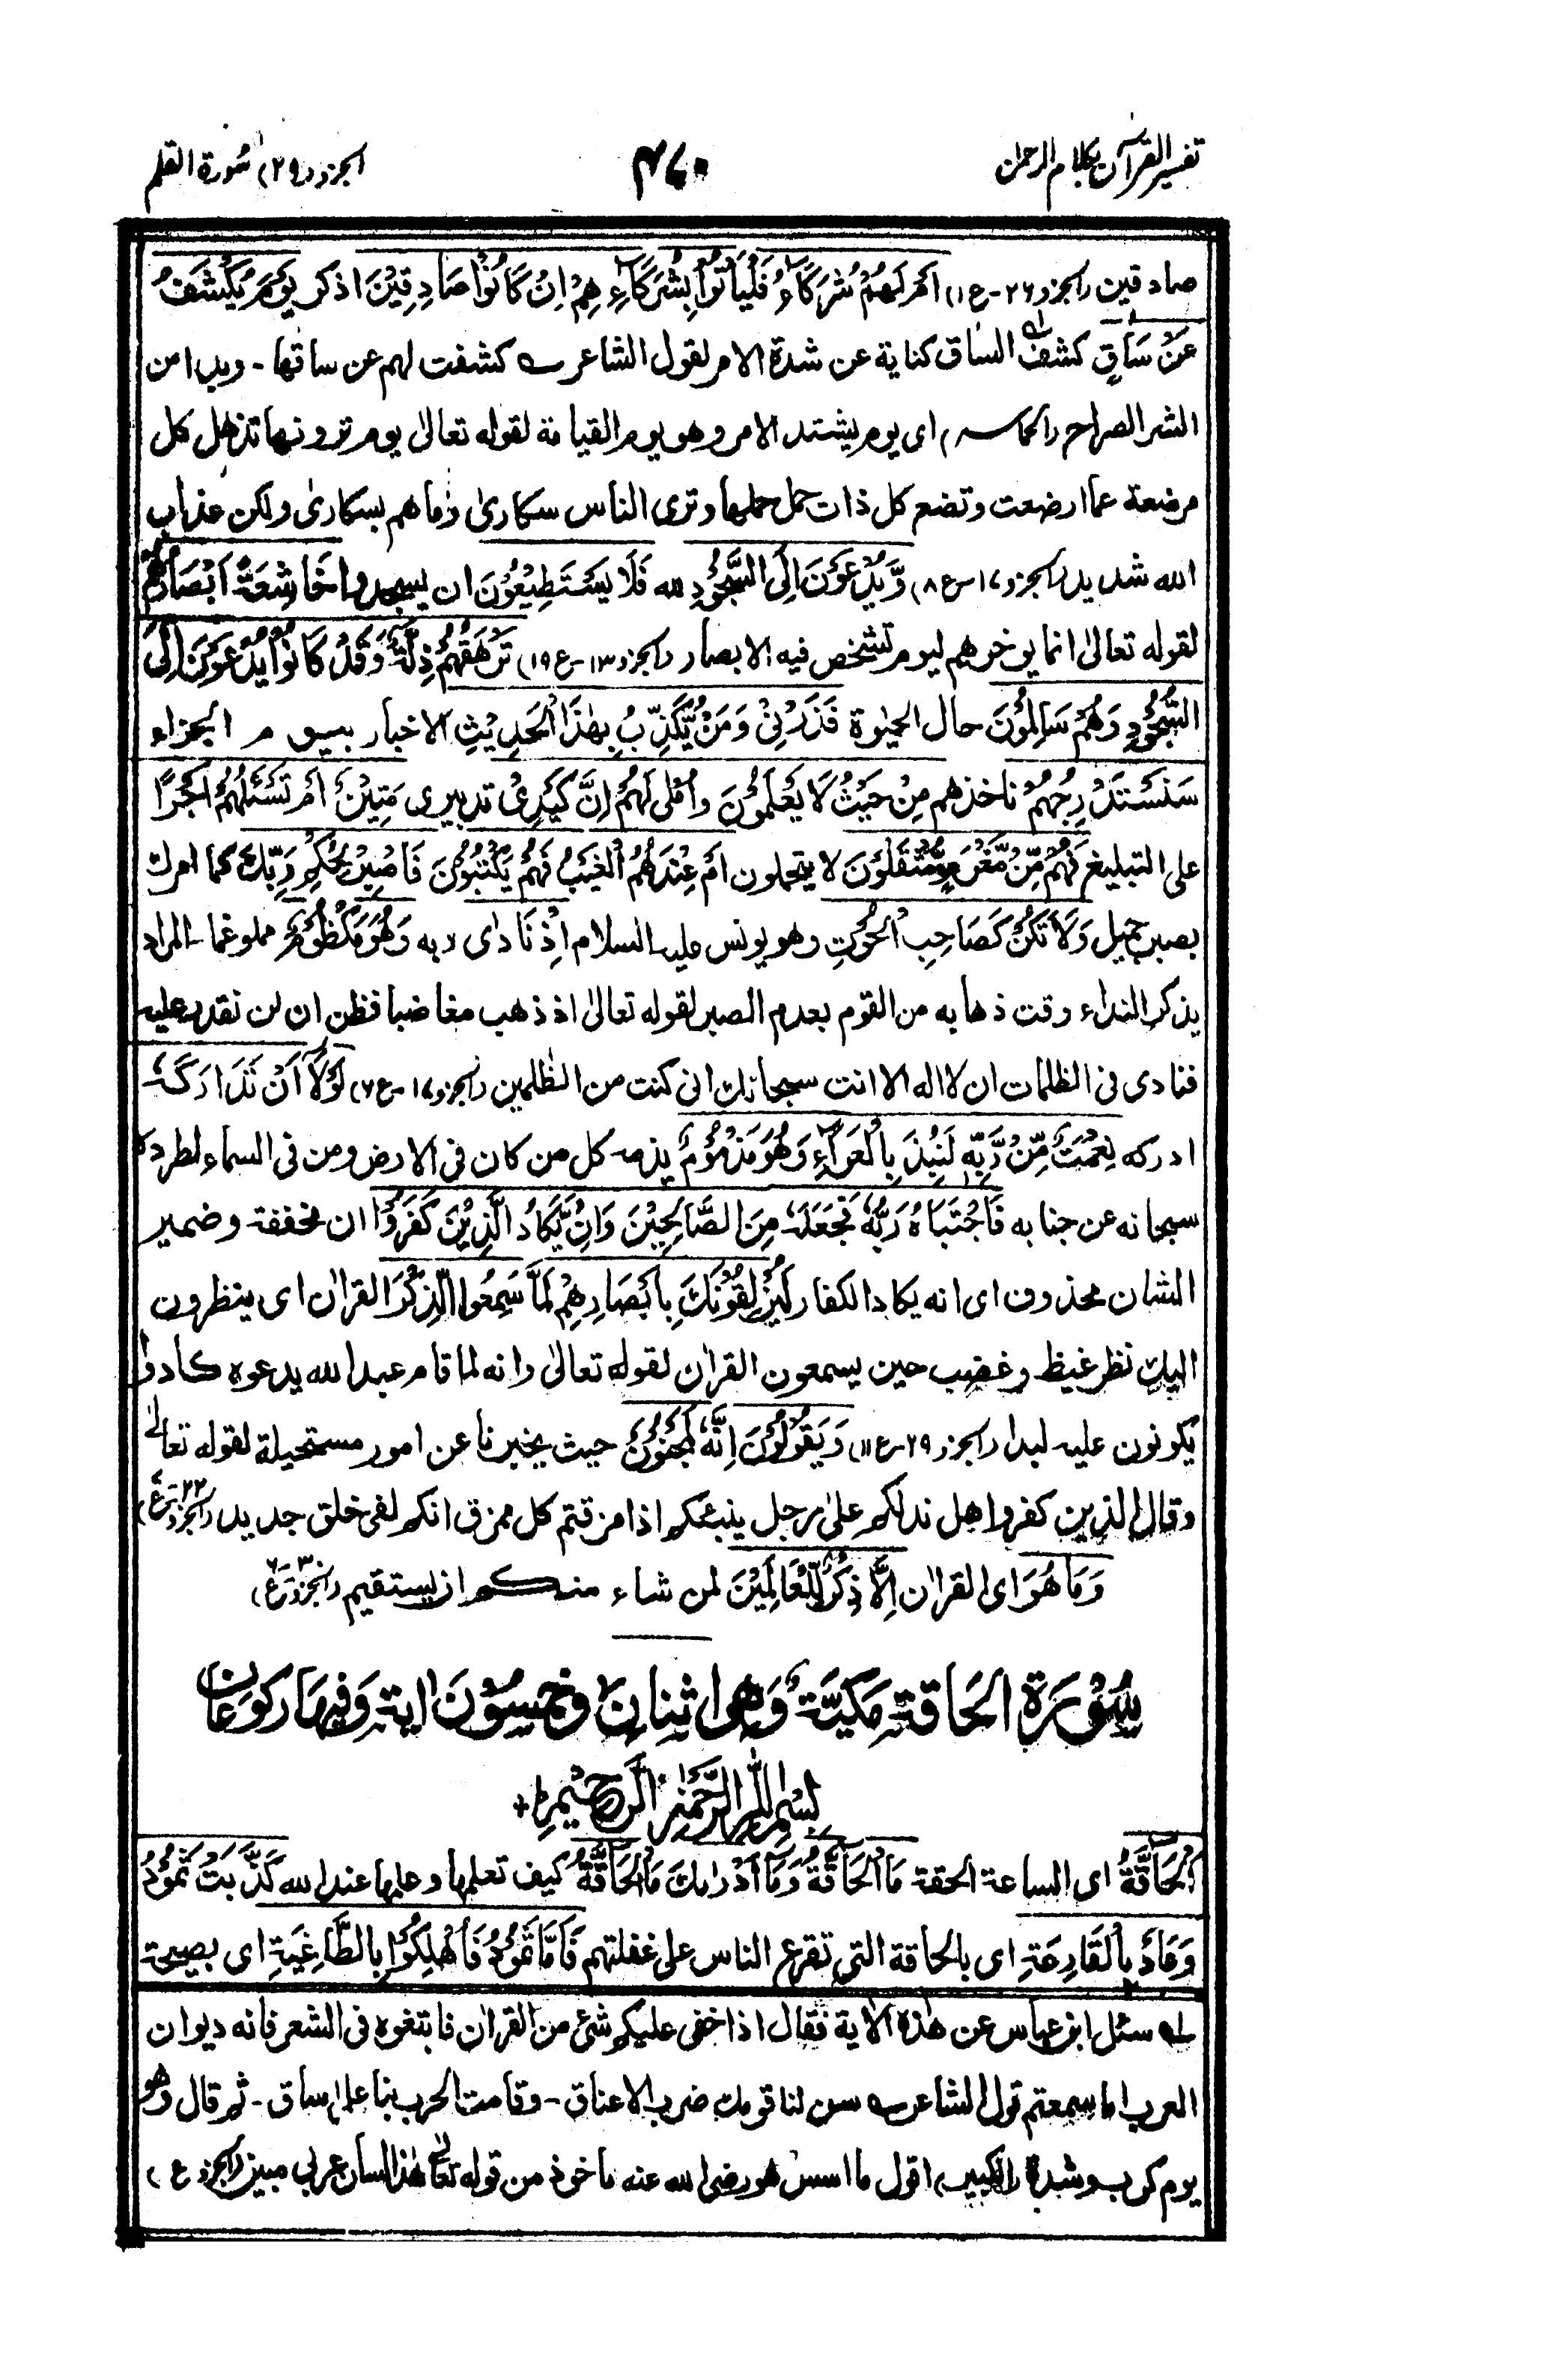 تفسير القرآن بكلام الرحمٰن
٣٧٠
الجزء (٢٩) سُورة القلم
صادقين (الجزء ٢٦-ع١) اَمْ لَهُمْ شُرَكَآءُ فَلْيَأْتُوْا بِشُرَكَآءِهِمْ اِنْ كَانُوْا صَادِقِيْنَ اذكر يَوْمَ يُكْشَفُ
عَنْ سَاقٍ كشف الساق كناية عن شدة الامر لقول الشاعر كشفت لهم عن ساقها - وبدا من
الشر الصراح (الحماسه) اى يوم يشتد الامر وهو يوم القيامة لقوله تعالىٰ يوم ترونها تذهل كل
مرضعة عما ارضعت وتضع كل ذات حمل حملها وترى الناس سكارىٰ وما هم بسكارىٰ ولكن عذاب
الله شديد (الجزء ١٧-ع٨) وَّيُدْعَوْنَ اِلَى السُّجُوْدِ لله فَلَا يَسْتَطِيْعُوْنَ ان يسجدوا خَاشِعَةً اَبْصَارُهُمْ
لقوله تعالىٰ انما يوخرهم ليوم تشخص فيه الابصار (الجزء ١٣-ع١٩) تَرْهَقُهُمْ ذِلَّةٌ وَقَدْ كَانُوْا يُدْعَوْنَ اِلَى
السُّجُوْدِ وَهُمْ سَالِمُوْنَ حال الحيٰوة فَذَرْنِىْ وَمَنْ يُّكَذِّبُ بِهٰذَا الْحَدِيْثِ الاخبار بيوم الجزاء
سَنَسْتَدْرِجُهُمْ ناخذهم مِنْ حَيْثُ لَا يَعْلَمُوْنَ وَاُمْلِى لَهُمْ اِنَّ كَيْدِىْ تدبيرى مَتِيْنٌ اَمْ تَسْئَلُهُمْ اَجْرًا
على التبليغ فَهُمْ مِّنْ مَّغْرَمٍ مُّثْقَلُوْنَ لا يتحملون اَمْ عِنْدَهُمُ الْغَيْبُ فَهُمْ يَكْتُبُوْنَ فَاصْبِرْ لِحُكْمِ رَبِّكَ كما امرك
بصبر جميل وَلَا تَكُنْ كَصَاحِبِ الْحُوْتِ وهو يونس عليه السلام اِذْ نَادٰى ربه وَهُوَ مَكْظُوْمٌ مملو غما - المراد
بذكر النداء وقت ذهابه من القوم بعدم الصبر لقوله تعالىٰ اذ ذهب مغاضبا فظن ان لن نقدر عليه
فنادى فى الظلمات ان لا اله الا انت سبحانك انى كنت من الظٰلمين (الجزء ١٧-ع٦) لَوْلَآ اَنْ تَدَارَكَهٗ
ادركه نِعْمَةٌ مِّنْ رَّبِّهٖ لَنُبِذَ بِالْعَرَآءِ وَهُوَ مَذْمُوْمٌ يذمه كل من كان فى الارض ومن فى السماء لطرده
سبحانه عن جنابه فَاجْتَبَاهُ رَبُّهٗ فَجَعَلَهٗ مِنَ الصَّالِحِيْنَ وَاِنْ يَّكَادُ الَّذِيْنَ كَفَرُوْا ان مخففة وضمير
الشان محذوف اى انه يكاد الكفار لَيُزْلِقُوْنَكَ بِاَبْصَارِهِمْ لَمَّا سَمِعُوا الذِّكْرَ القراٰن اى ينظرون
اليك نظر غيظ وغضب حين يسمعون القراٰن لقوله تعالىٰ وانه لما قام عبد الله يدعوه كادوا
يكونون عليه لبدا (الجزء ٢٩-ع١١) وَيَقُوْلُوْنَ اِنَّهٗ لَمَجْنُوْنٌ حيث يخبرنا عن امور مستحيلة لقوله تعالىٰ
وقال الذين كفروا هل ندلكم علىٰ رجل ينبئكم اذا مزقتم كل ممزق انكم لفى خلق جديد (الجزء ٢٢-ع٧)
وَمَا هُوَ اى القراٰن اِلَّا ذِكْرٌ لِّلْعَالَمِيْنَ لمن شاء منكم ان يستقيم (الجزء ٣٠-ع٦)
سُوْرَةُ الحَاقةِ مَكيَّةٌ وَهِى اثنانِ وخمسُوْنَ اٰية وَفيهَا ركوعَان
بِسْمِ اللهِ الرَّحْمٰنِ الرَّحِيْمِ
اَلْحَآقَّةُ اى الساعة الحقة مَا الْحَآقَّةُ وَمَآ اَدْرَاىكَ مَا الْحَآقَّةُ كيف تعلمها وعلمها عند الله كَذَّبَتْ ثَمُوْدُ
وَعَادٌ بِالْقَارِعَةِ اى بالحاقة التى تقرع الناس على غفلتهم فَاَمَّا ثَمُوْدُ فَاُهْلِكُوْا بِالطَّاغِيَةِ اى بصيحة
لـه سئل ابن عباس عن هٰذه الاٰية فقال اذا خفى عليكم شئ من القراٰن فابتغوه فى الشعر فانه ديوان
العرب اما سمعتم قول الشاعر سن لنا قومك ضرب الاعناق - وقامت الحرب بنا علىٰ ساق - ثم قال وهو
يوم كرب وشدة (الكبير) اقول ما اسس هو رضى الله عنه ماخوذ من قوله تعالىٰ هٰذا لسان عربى مبين (الجزء ع)